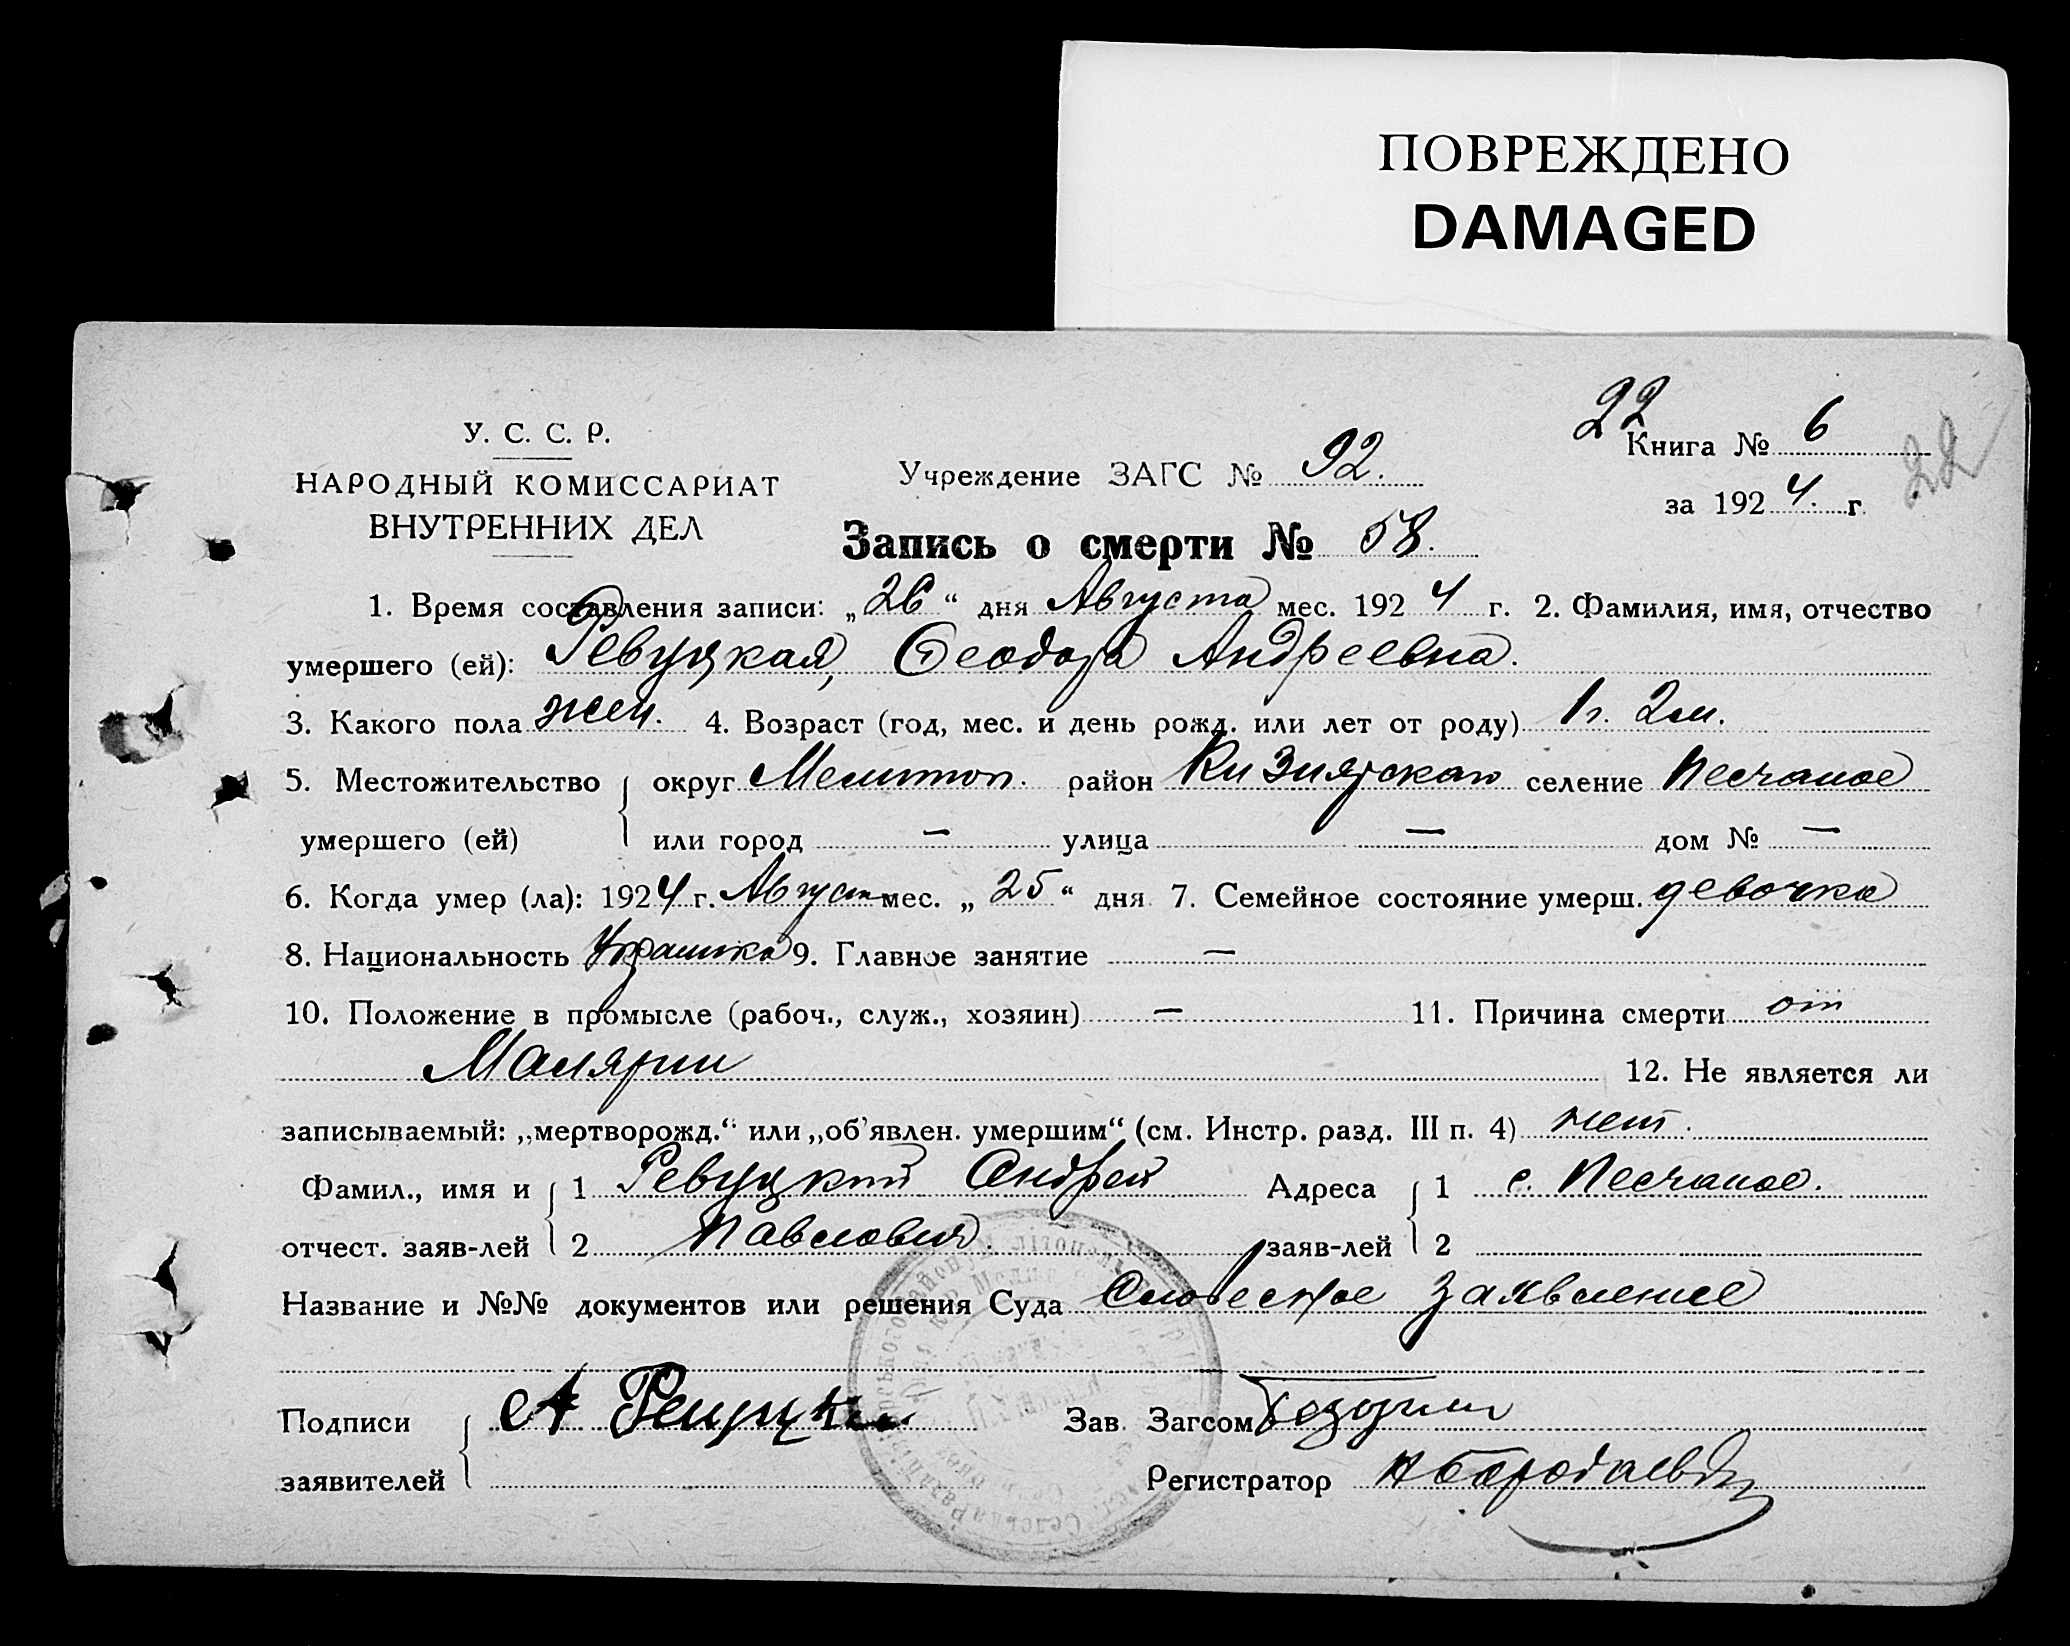 ПОВРЕЖДЕНО
DAMAGED
22
У. С. С. Р.
Книга № 6
22
НАРОДНЫЙ КОМИССАРИАТ
Учреждение ЗАГС № 92.
за 1924. г.
ВНУТРЕННИХ ДЕЛ
Запись о смерти № 58.
1. Время составления записи: „26“ дня Августа мес. 1924 г. 2. Фамилия, имя, отчество
умершего (ей): Ревуцкая, Феодора Андреевна.
3. Какого пола жен. 4. Возраст (год, мес. и день рожд. или лет от роду) 1г. 2м.
5. Местожительство округ Мелитоп. район Кизиярскаго селение Песчаное
умершего (ей) или город — улица — дом № —
6. Когда умер (ла): 1924 г. Август мес. „25“ дня 7. Семейное состояние умерш. девочка
8. Национальность 9. Главное занятие —
10. Положение в промысле (рабоч., служ., хозяин) — 11. Причина смерти от
Малярии 12. Не является ли
записываемый: „мертворожд.“ или „об'явлен. умершим“ (см. Инстр. разд. III п. 4) нет.
Фамил., имя и 1 Ревуцкий Андрей Адреса 1 с. Песчаное.
отчест. заяв-лей 2 Павлович. заяв-лей 2
Название и №№ документов или решения Суда Словесное заявление
Подписи А Зав. Загсом
заявителей Регистратор